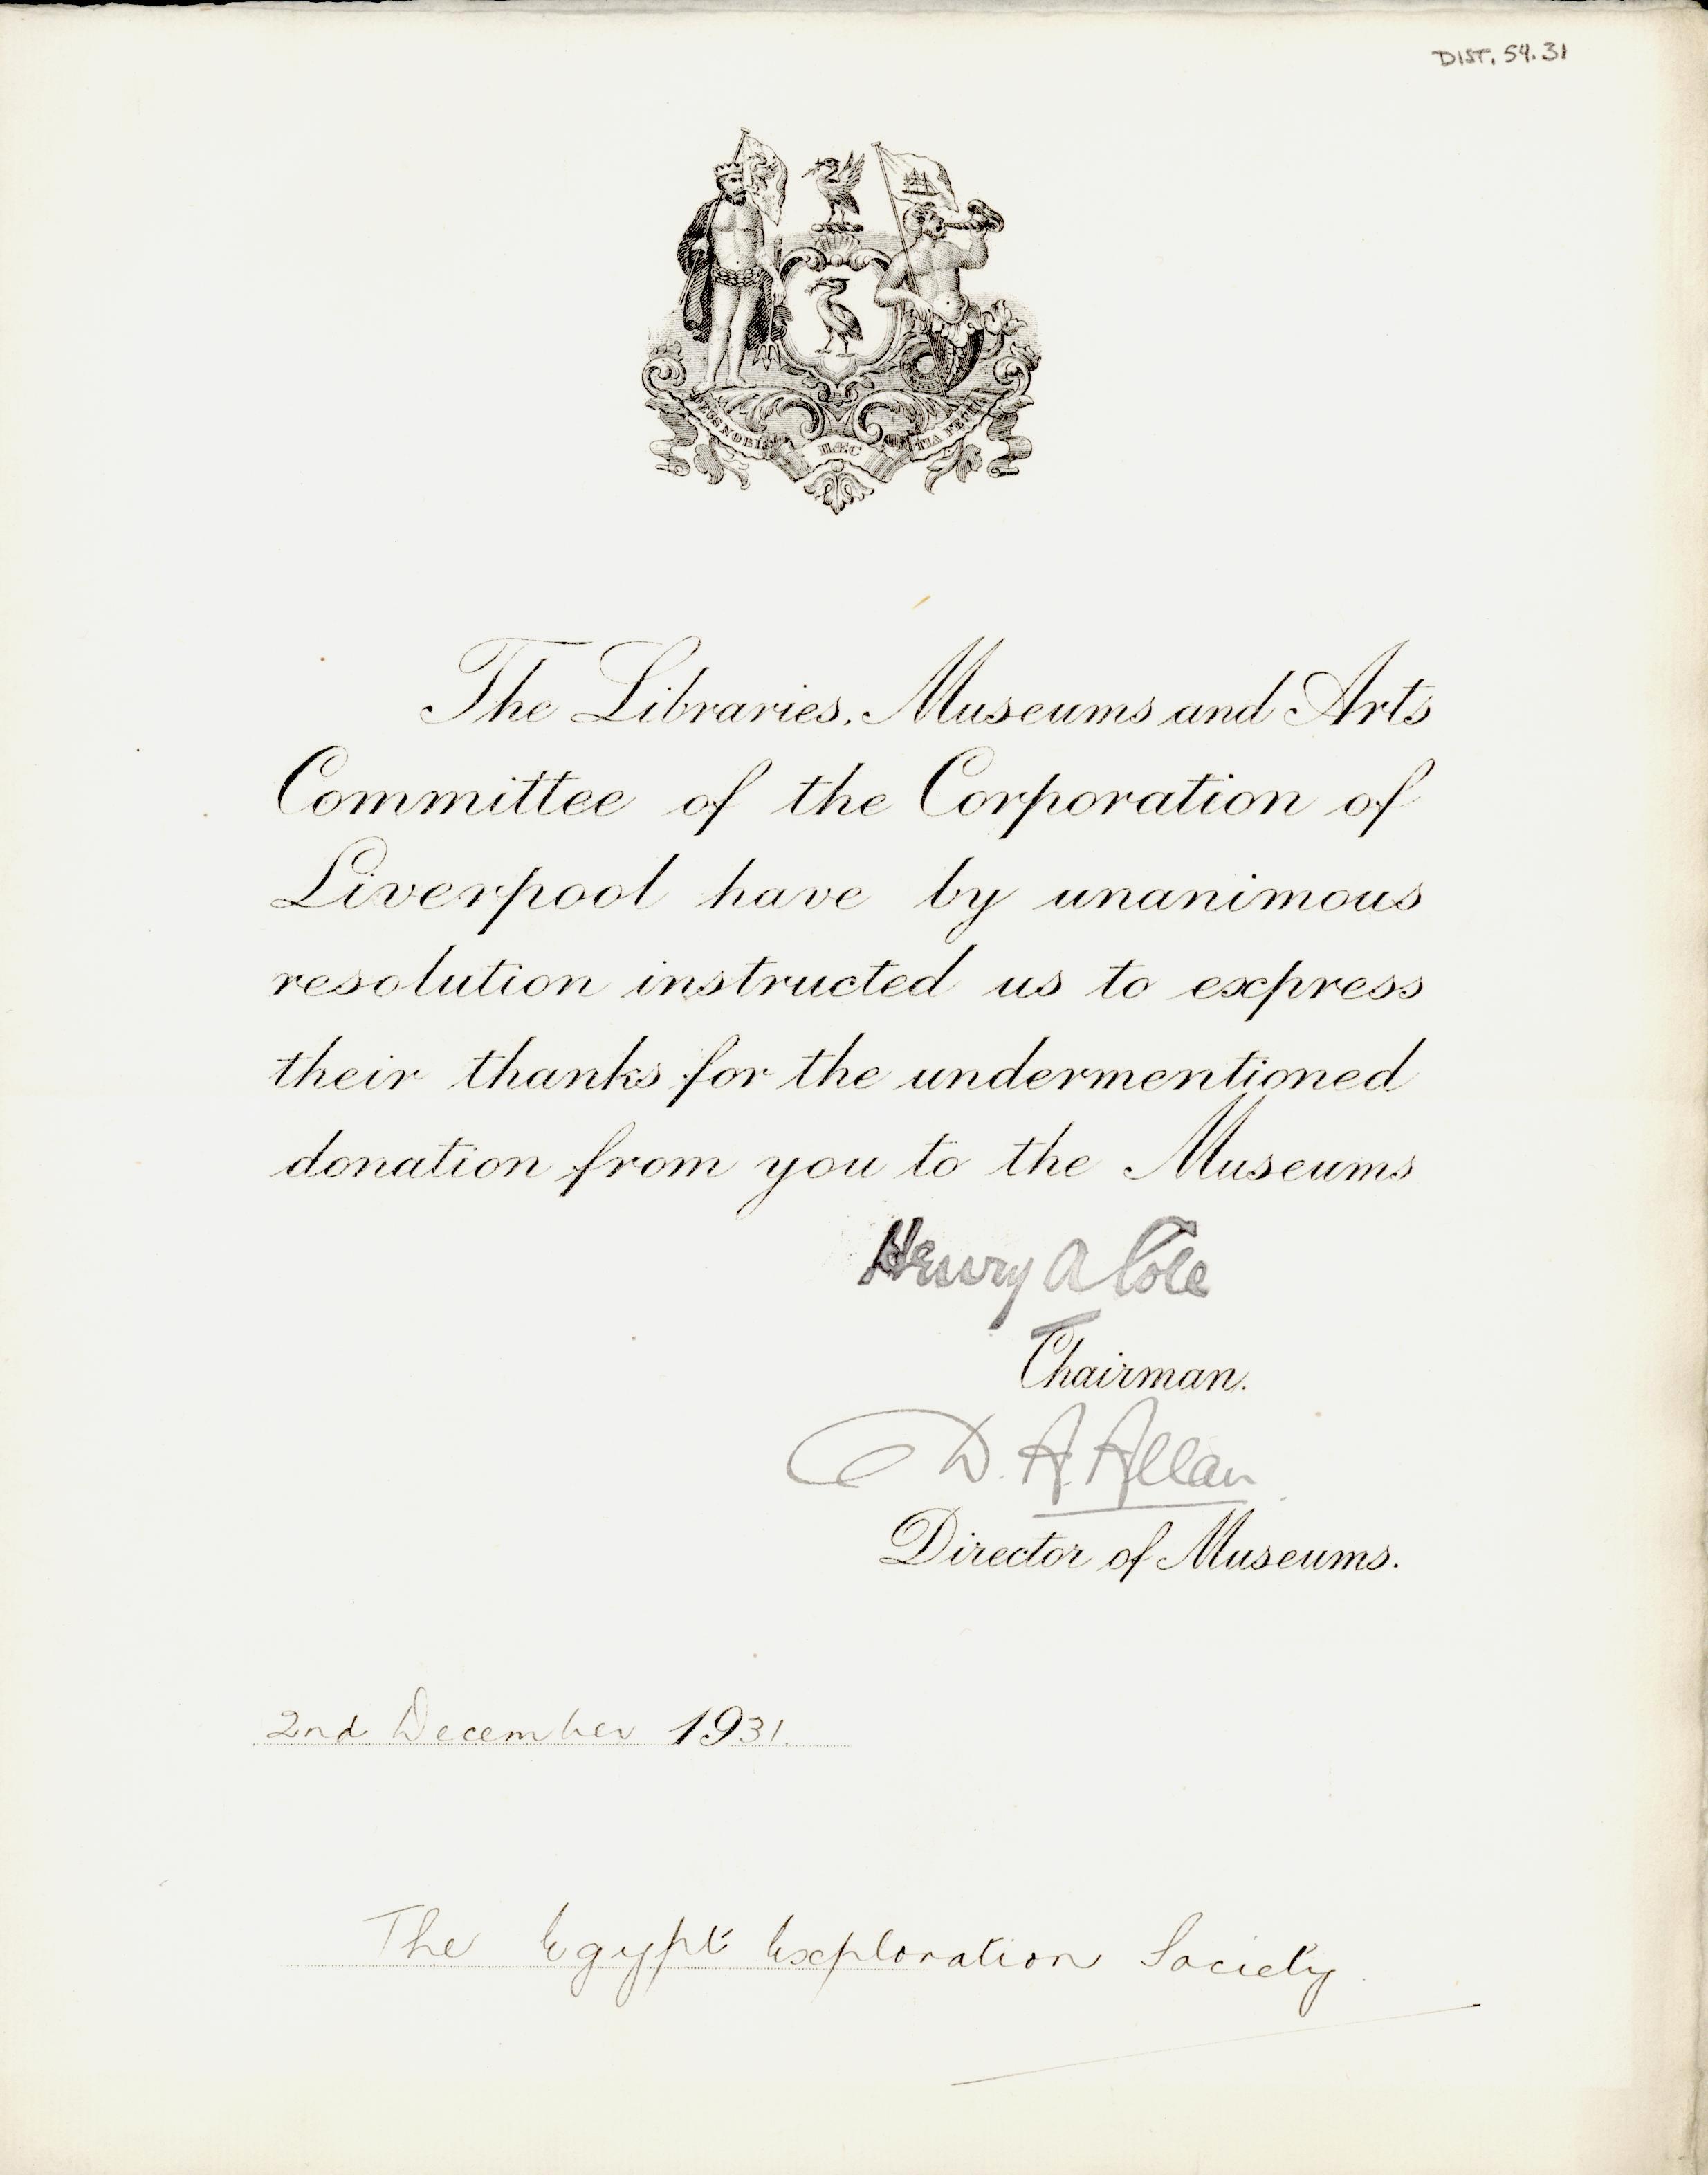 DIST. 54.31
DEUS NOBIS HÆC
The Libraries, Museums and Arts
Committee of the Corporation of
Liverpool have by unanimous
resolution instructed us to express
their thanks for the undermentioned
donation from you to the Museums
Henry A Cole
Chairman.
D. A. Allan
Director of Museums.
2nd December 1931.
The Egypt Exploration Society